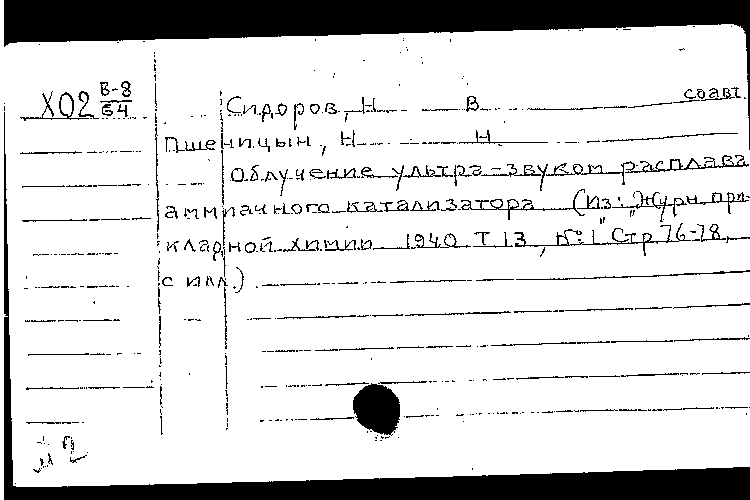 Х02 В-8/64
Сидоров, Н В соавт.
Пшеницын, Н Н
Облучение ультра-звуком расплава
аммиачного катализатора (Из: „Журн при-
кладной химии 1940 Т 13, №1" Стр 76-78,
с илл.)